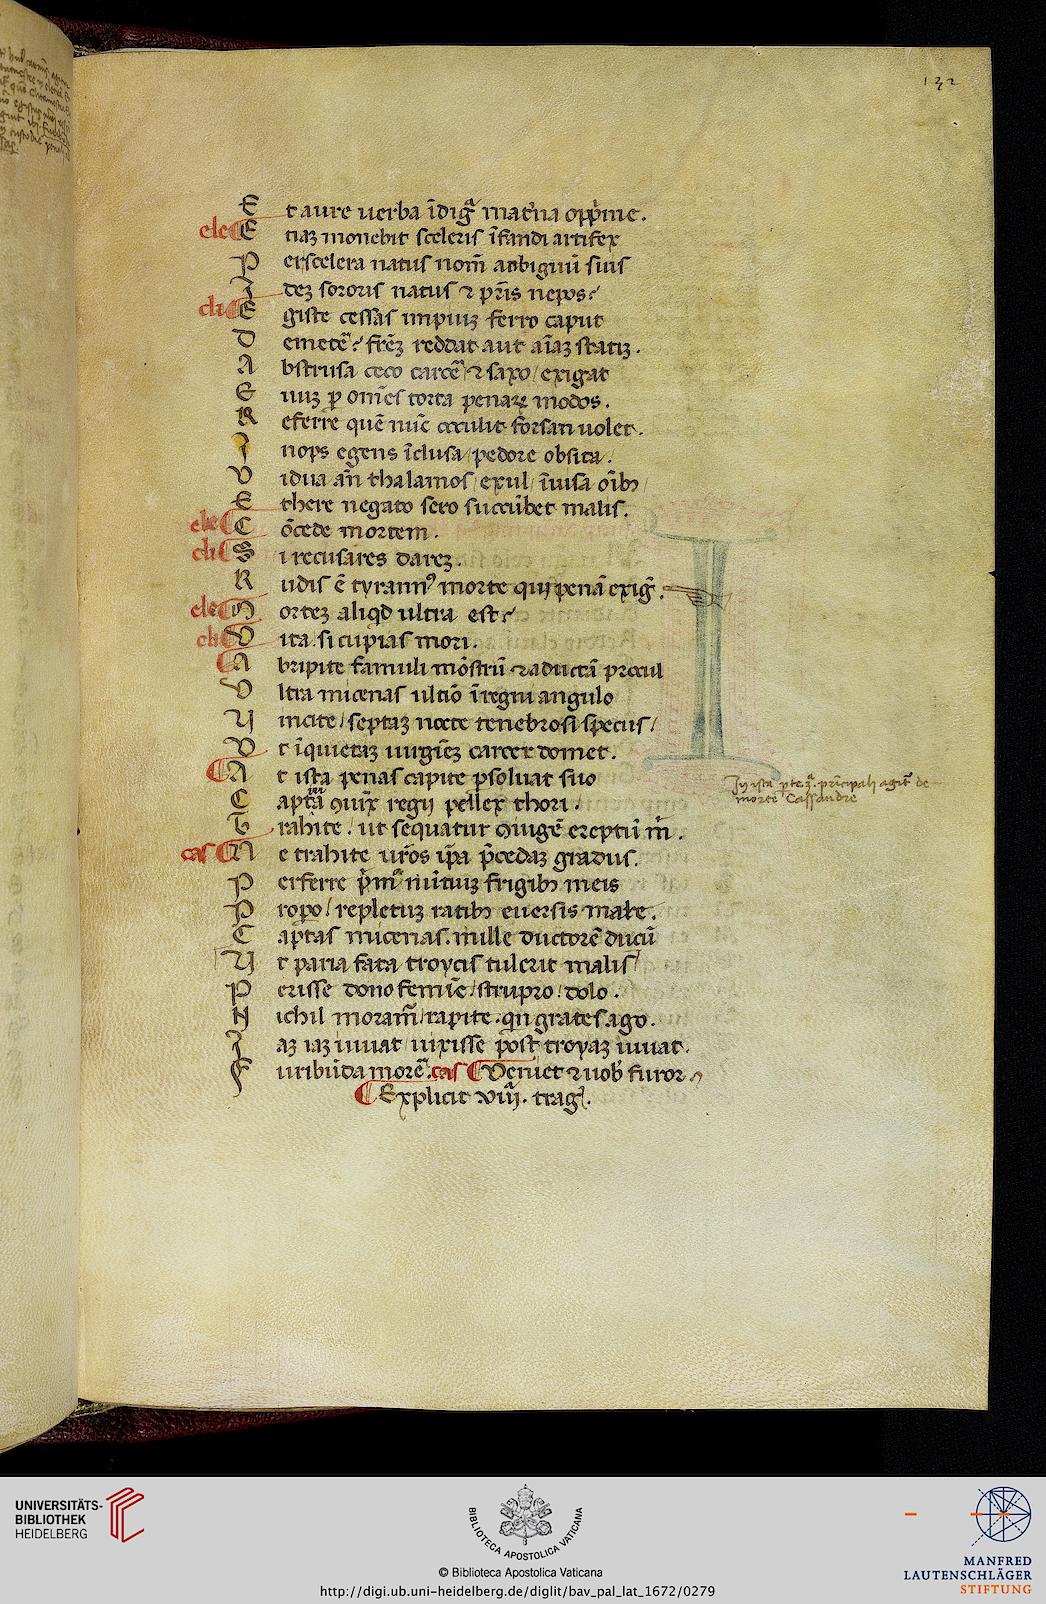 132
E t aure uerba īdigᷓ mat̄na opp̄me.
ele E tiaꝫ monebit sceleris īfandi artifex
P erscelera natus nom̄ anbiguū suis
I deꝫ sororis natus ⁊ pr̄is nepos?
cli E giste cessas impiuꝫ ferro caput
D emetē? fr̄eꝫ reddat aut aīaꝫ statiꝫ.
A bstrusa ceco carcē / ⁊ saxo / exigat
E uuꝫ ꝑ om̄es torta penaꝝ modos.
R eferre quē nūc occulit forsan uolet.
I nops egens īclusa / pedore obsita /
V idua an̄ thalamos / exul / īuisa oīb⁊ /
E there negato sero succūbet malis.
ele C ōcede mortem.
cli S i recusares dareꝫ.
R udis ē tyrann⁹ morte qui penā exiḡ.
ele M orteꝫ aliqd ultra est?
cli V ita. si cupias mori.
A bripite famuli mōstrū ⁊ aductā procul
V ltra micenas ultīo ī regni angulo
V incite / septaꝫ nocte tenebrosi specus /
V t īquietaꝫ uirgīeꝫ carcer domet.
A t ista penas capite ꝑsoluat suo
C apta ꝯiūx regij pellex thori /
T rahite / ut sequatur ꝯiugē ereptū m̄.
cas N e trahite ur̄os ip̄a p̄cedaꝫ gradus.
P erferre p̄m̄ nūtiuꝫ frigib⁊ meis
P ropo / repletuꝫ ratib⁊ euersis mare.
C aptas micenas. mille ductorē ducū
V t paria fata troycis tulerit malis /
P erisse dono femīe / strupro / dolo.
N ichil moram̄ / rapite. qn grates ago.
I aꝫ iaꝫ iuuat / uixisse post troyaꝫ iuuat.
F uribūda morē. cas Veniet ⁊ uob furor
Explicit viij. trag.
In ista pte ꝫ. p̄ncipali agit̄ de
morte Cassandre
UNIVERSITÄTS-
BIBLIOTHEK
HEIDELBERG
BIBLIOTECA APOSTOLICA VATICANA
© Biblioteca Apostolica Vaticana
http://digi.ub.uni-heidelberg.de/diglit/bav_pal_lat_1672/0279
MANFRED
LAUTENSCHLÄGER
STIFTUNG